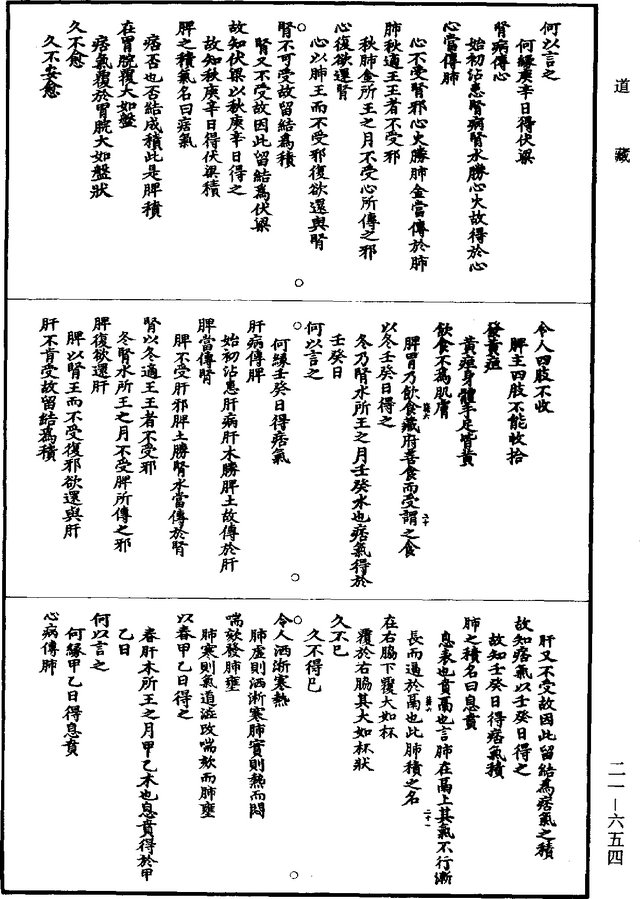 道藏
何以言之
何緣庚辛日得伏梁
腎病傳心
始初沾患腎病腎水勝心火故得於心
心當傳肺
心不受腎邪心火勝肺金當傳於肺
肺秋適王王者不受邪
秋肺金所王之月不受心所傳之邪
心復欲還腎
心以肺王而不受邪復欲還與腎
腎不可受故留結爲積
腎又不受故因此留結爲伏梁
故知伏梁以秋庚辛日得之
故知秋庚辛日得伏梁積
脾之積氣名曰痞氣
痞否也否結成積此是脾積
在胃脘覆大如盤
痞氣覆於胃脘大如盤狀
久不愈
久不安愈
令人四肢不收
脾主四肢不能收拾
發黃疸
黃疸身體手足皆黃
飲食不爲肌膚
脾胃乃飲食藏府善食而受謂之食
以冬壬癸日得之
冬乃腎水所王之月壬癸水也痞氣得於
壬癸日
何以言之
何緣壬癸日得痞氣
肝病傳脾
始初沾患肝病肝木勝脾土故傳於肝
脾當傳腎
脾不受肝邪脾土勝腎水當傳於腎
腎以冬適王王者不受邪
冬腎水所王之月不受脾所傳之邪
脾復欲還肝
脾以腎王而不受復邪欲還與肝
肝不肯受故留結爲積
肝又不受故因此留結爲痞氣之積
故知痞氣以壬癸日得之
故知壬癸日得痞氣積
肺之積名曰息賁
息表也賁鬲也言肺在鬲上其氣不行漸
長而逼於鬲也此肺積之名
在右脇下覆大如杯
覆於右脇其大如杯狀
久不已
久不得已
令人洒淅寒熱
肺虛則洒淅寒肺實則熱而悶
喘欬發肺壅
肺寒則氣道澁故喘欬而肺壅
以春甲乙日得之
春肝木所王之月甲乙木也息賁得於甲
乙日
何以言之
何緣甲乙日得息賁
心病傳肺
二一—六五四